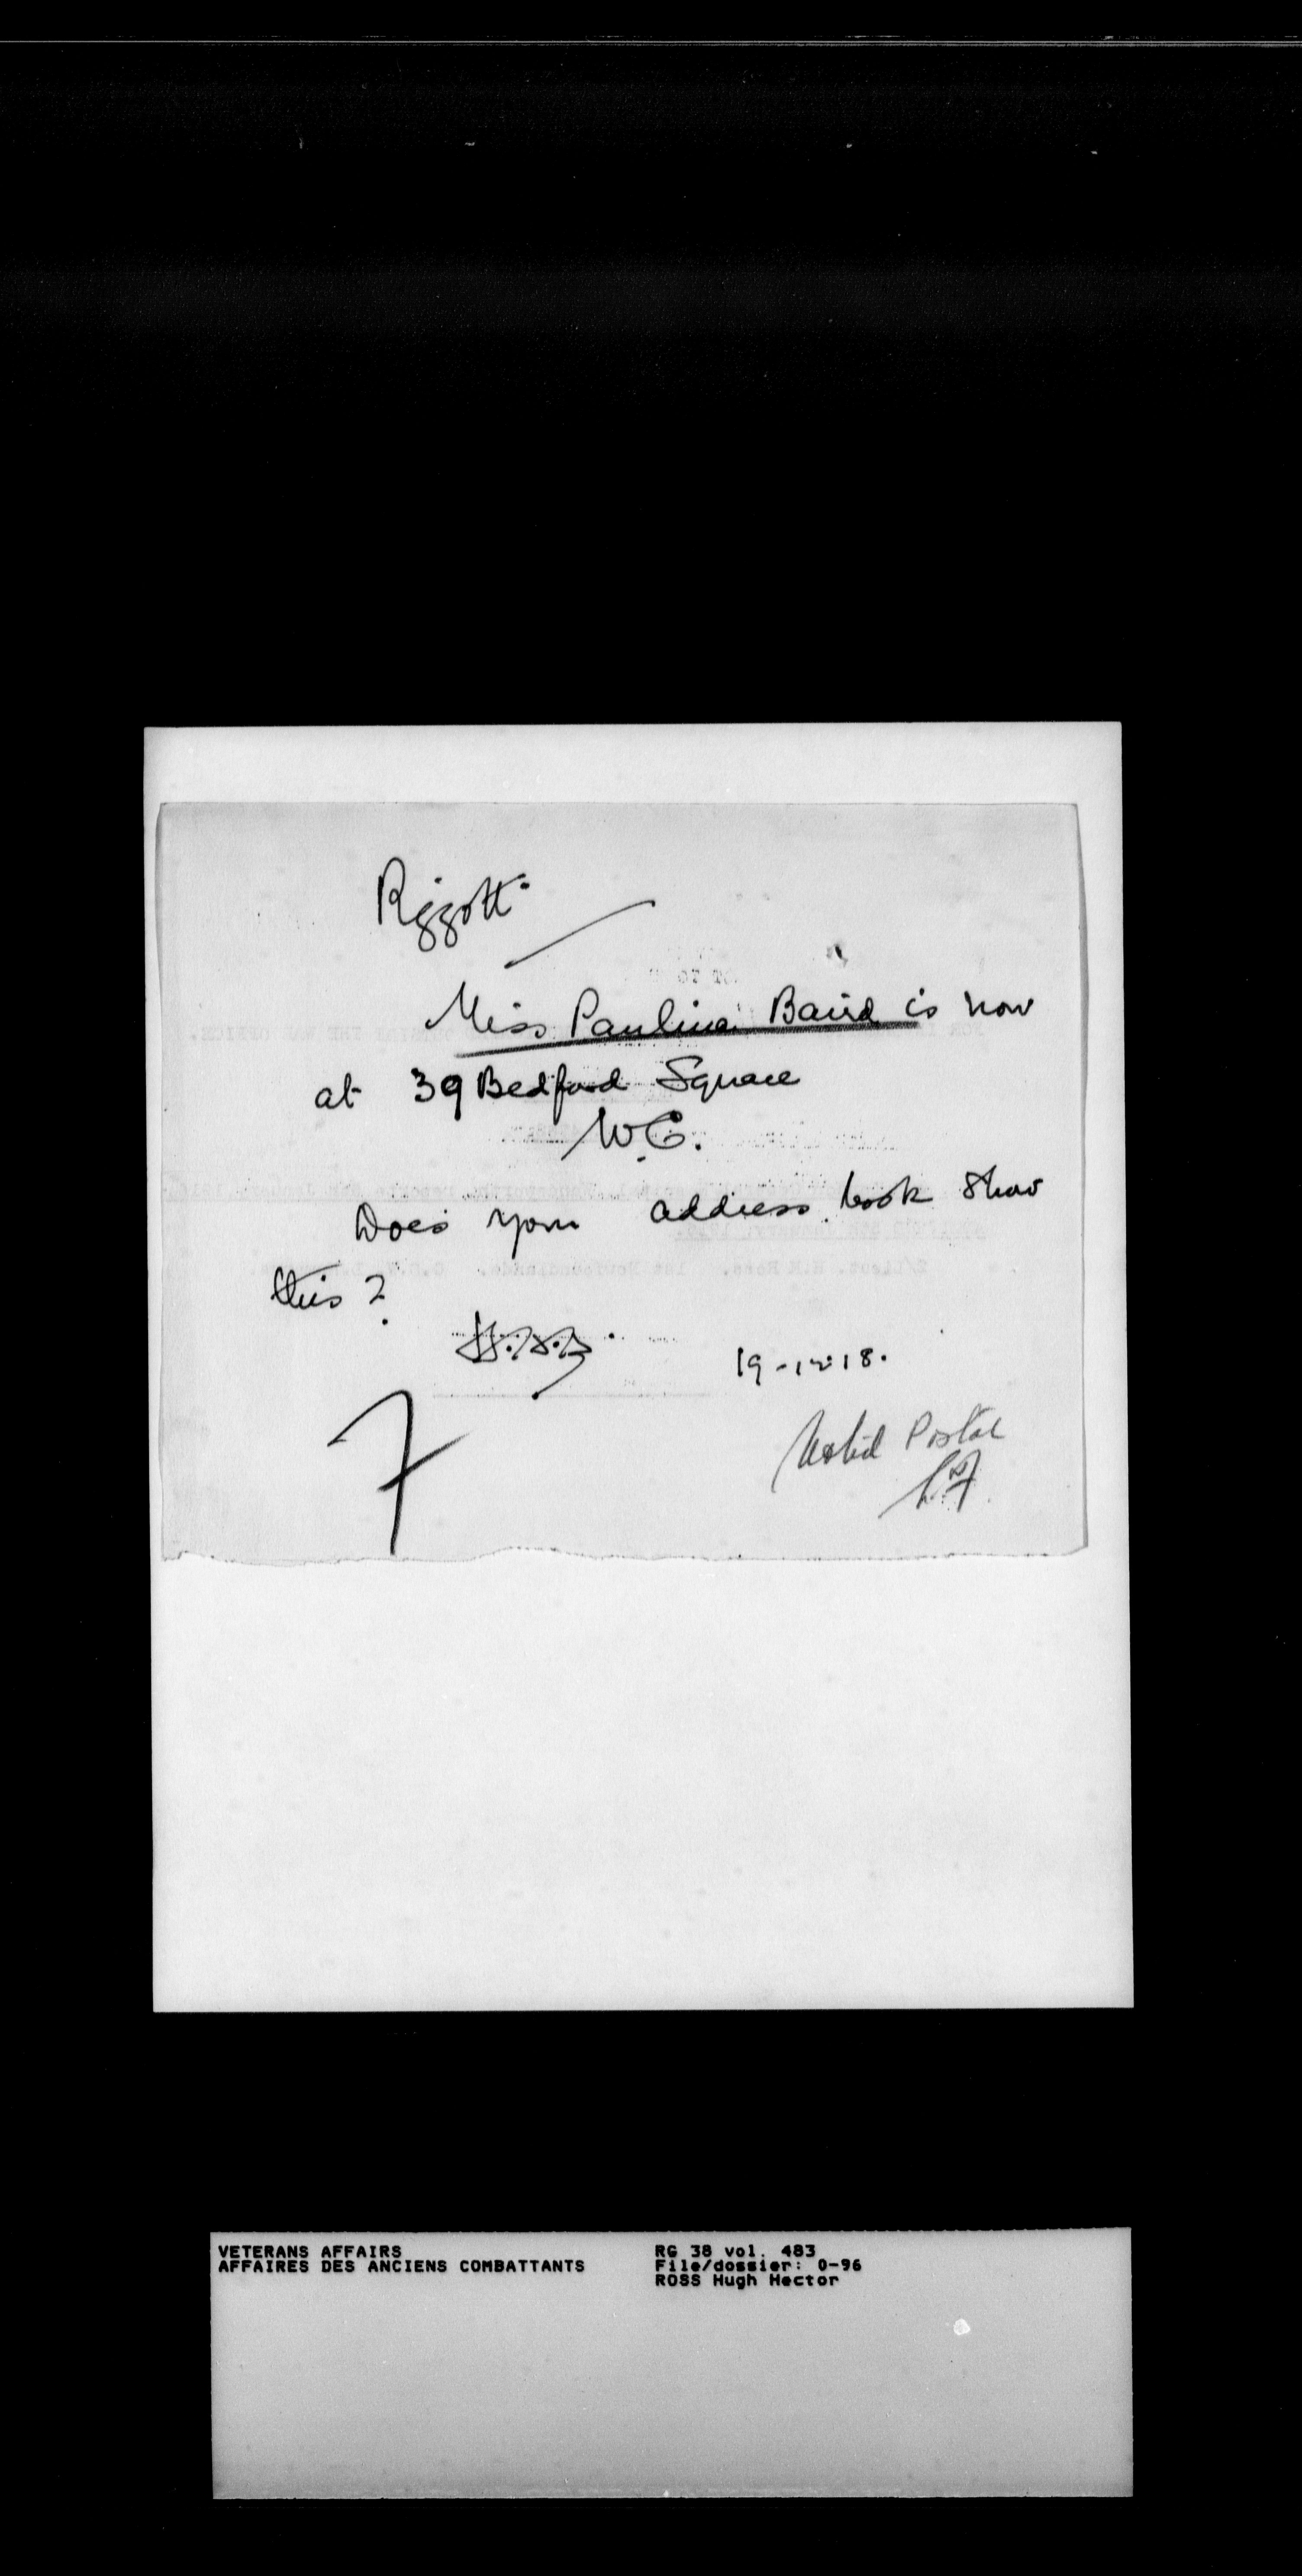 Miss Paulina Baird is now
at 39 Bedford Square
W.C.
Does your address book show
this?
19-12-18.
Noted Postal
VETERANS AFFAIRS
AFFAIRES DES ANCIENS COMBATTANTS
RG 38 vol. 483
File/dossier: 0-96
ROSS Hugh Hector